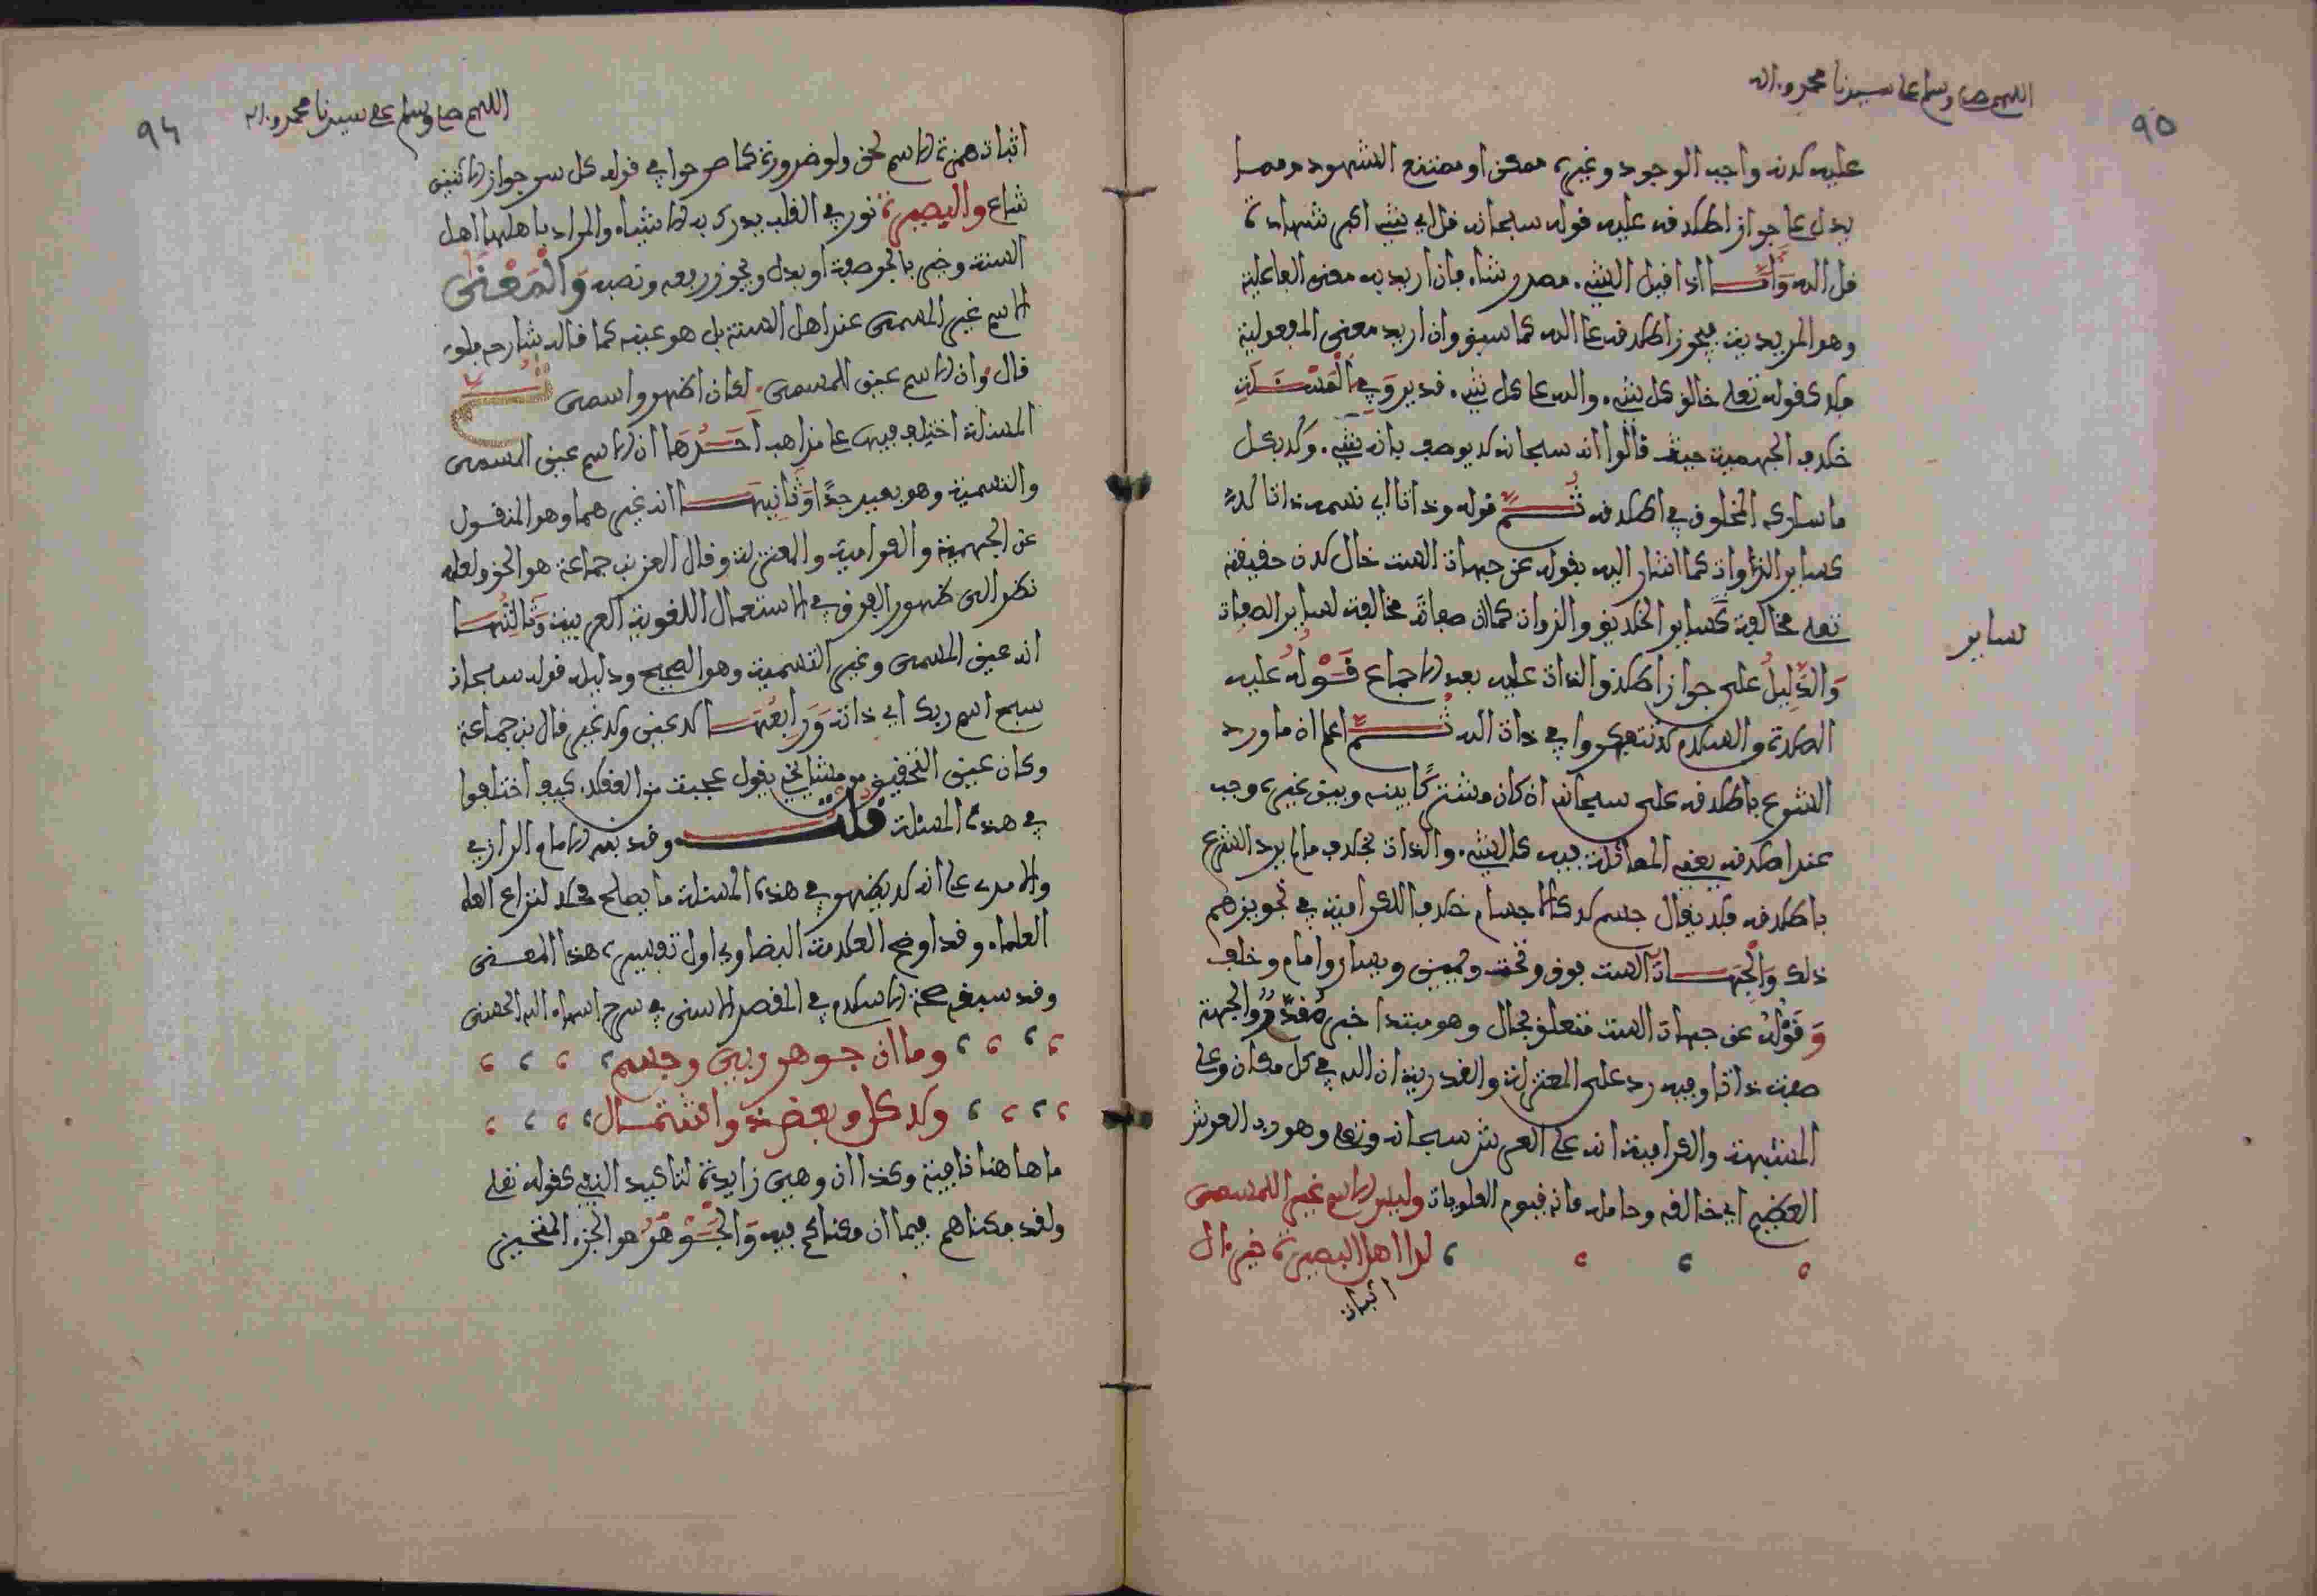 اللهم صل وسلم على سيدنا محمد وءاله
٩٥
عليه لانه واجب الوجود وغيره ممكن او ممتنع الشهود ومما
يدل على جواز اطلاقه عليه قوله سبحانه قل اي شيء اكبر شهادة
قل الله وأما اذا قيل الشيء مصدر شاء فان اريد به معنى الفاعلية
وهو المريدية فيجوز اطلاقه على الله كما سبق وان اريد معنى المفعولية
فلا كقوله تعلى خالق كل شيء والله على كل شيء قدير وفي المسئلة
خلاف الجهمية حيث قالوا انه سبحانه لا يوصف بانه شيء ولا بكل
ما يشارك المخلوق في اطلاقه ثم قوله وذاتا اي نسميه ذاتا لا
كساير الذاوات كما اشار اليه بقوله عن جهات الست خال لان حقيقته
تعلى مخالفة كساير الخلايق والذوات كما ان صفاته مخالفة لساير الصفات
لساير
والدليل على جواز اطلاق الذات عليه بعد الاجماع قوله عليه
الصلاة والسلام لا تتفكروا في ذات الله ثم اعلم ان ما ورد
الشرع باطلاقه على سبحانه ان كان مشتركا بينه وبين غيره وجب
عند اطلاقه نفي المماثلة فيه كالشيء والذات بخلاف ما لم يرد الشرع
باطلاقه فلا يقال جسم لا كالاجسام خلافا للكرامية في تجويزهم
ذلك والجهات الست فوق وتحت ويمين ويسار وامام وخلف
وقوله عن جهات الست متعلق بخال وهو مبتدا خبر مقدم والجملة
صفة ذاتا وفيه رد على المعتزلة والقدرية ان الله في كل مكان وعلى
المشبهة والكرامية انه على العرش سبحانه وتعلى وهو رب العرش
العظيم اي خالقه وحامله فانه قيوم العلويات وليس الاسم غير اللمسمى
، ، ، ، لدا اهل البصيرة خير ءال
اثبات
اللهم صل وسلم على سيدنا محمد وءاله
٩٤
اثبات همزة الاسم لحن ولو ضرورة كما صرحوا في قوله كل سر جواز الاثنين
شاع والبصيرة نور في القلب يدرك به الاشياء والمراد باهلها اهل
السنة وخير بالجر صفة او بدل ويجوز رفعه ونصبه والمعنى
الاسم غير المسمى عند اهل السنة بل هو عينه كما قاله شارحه
قال وان الاسم عين المسمى لكان اظهر واسمى ثم
المسئلة اختلف فيها على مذاهب أحدها ان الاسم عين المسمى
والتسمية وهو بعيد جدا وثانيها انه غيرهما وهو المنقول
عن الجهمية والكرامية والمعتزلة وقال العز بن جماعة هو الحق ولعله
نظر الى ظهور الفرق في الاستعمال اللغوية العربية وثالثها
انه عين المسمى وغير التسمية وهو الصحيح ودليله قوله سبحانه
سبح اسم ربك اي ذاته ورابعها لا عين ولا غير قال بن جماعة
وكان عين التحقيق من مشايخي يقول عجبت من العقلاء كيف اختلفوا
في هذه المسئلة قلت وقد نبه الامام الرازي
والامدي على انه لا يظهر في هذه المسئلة ما يصلح محلا لنزاع العلم
العلماء وقد اوضح العلامة البيضاوي اول تفسيره هذا المعنى
وقد سبقه حجة الاسلام في المقصد الاسنى في شرح اسماء الله الحسنى
، ، ، ، وما ان جوهر ربي وجسم ، ، ، ،
، ، ، ، ولا كل وبعض ذو اشتمال ، ، ، ،
ما ها هنا نافية وكذا ان وهي زايدة لتاكيد النفي كقوله تعلى
ولقد مكناهم فيما ان مكناكم فيه والجوهر هو الجزء المتحيز